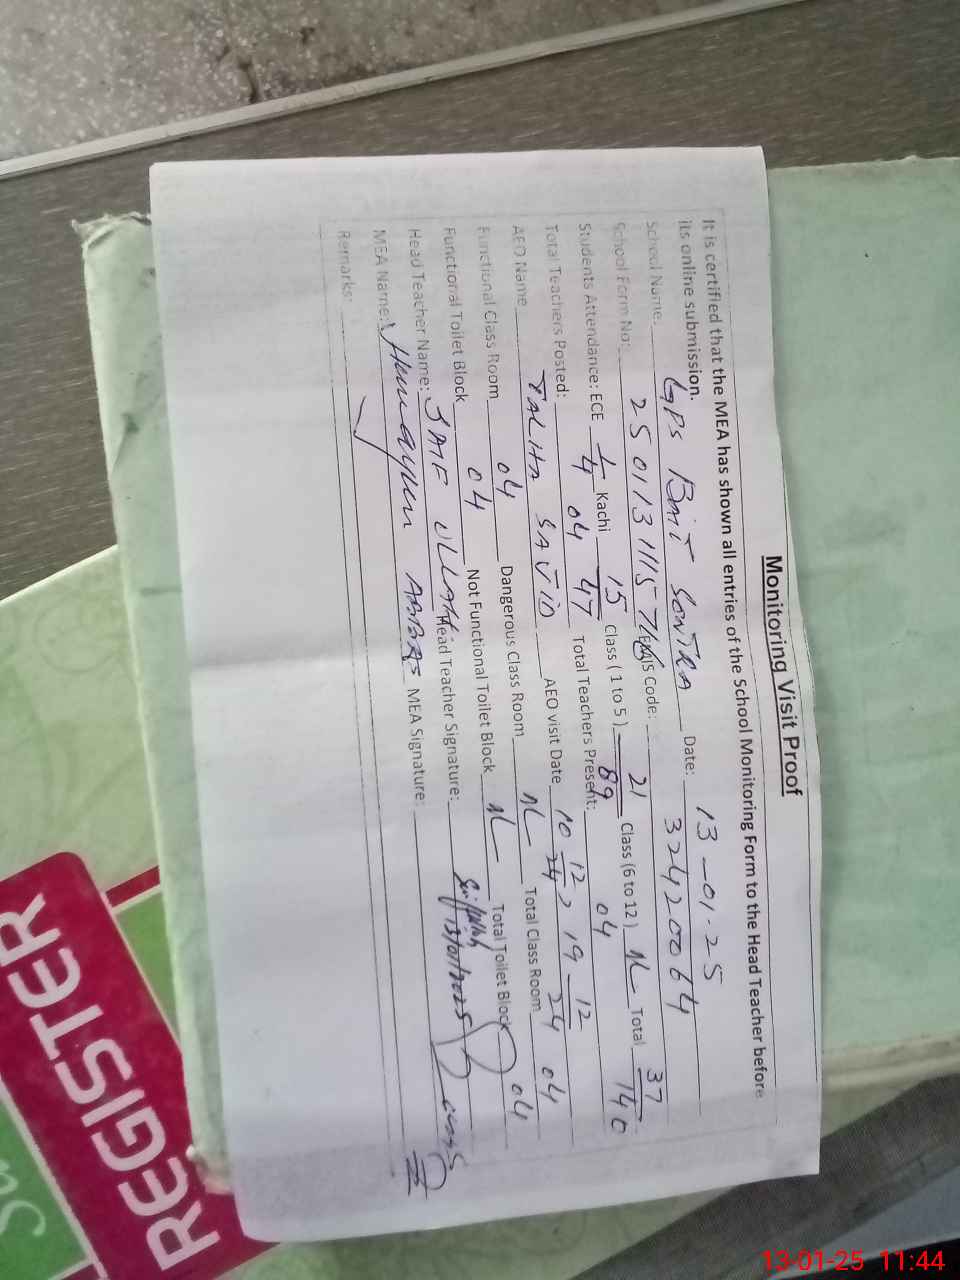 Monitoring Visit Proof
It is certified that the MEA has shown all entries of the School Monitoring Form to the Head Teacher before
its online submission.
School Name: GPS BAIT SONTRA Date: 13-01-25
School Form No: 25011311157 EMIS Code: 32420064
Students Attendance: ECE 1/4 Kachi 15/47 Class (1 to 5) 21/89 Class (6 to 12) NL Total 37/140
Total Teachers Posted: 04 Total Teachers Present: 04
AEO Name TALHA SAJID AEO visit Date 10-12-24, 19-12-24
Functional Class Room 04 Dangerous Class Room NL Total Class Room 04
Functional Toilet Block 04 Not Functional Toilet Block NL Total Toilet Block 04
Head Teacher Name: SAIF ULLAH Head Teacher Signature: 13/01/2025
MEA Name: Humayun ABBAS MEA Signature:
Remarks:
REGISTER
13-01-25 11:44